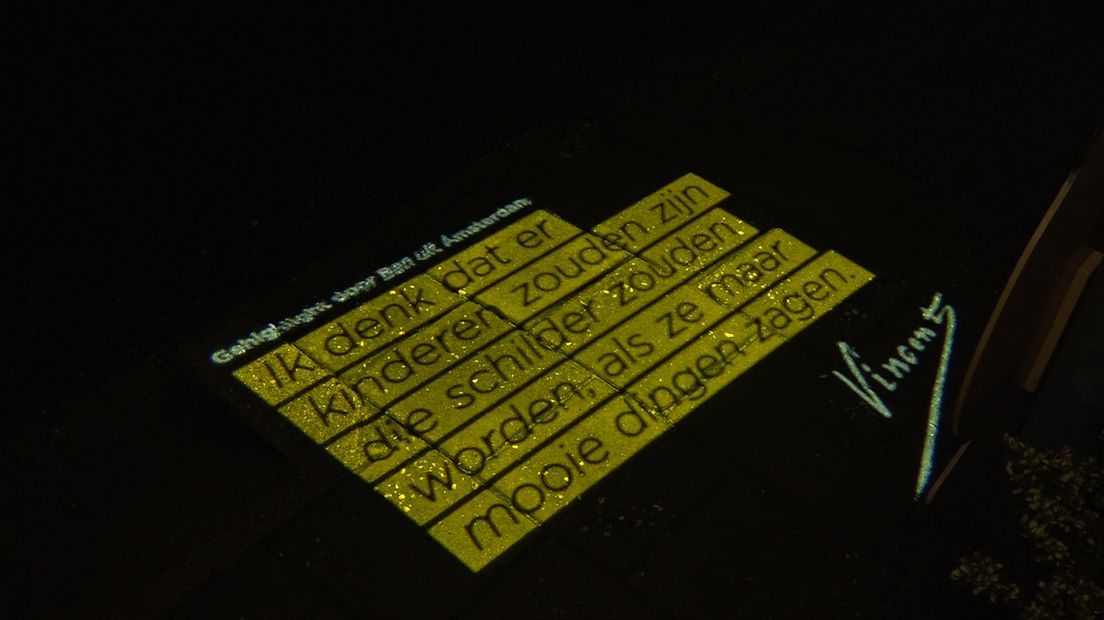 Gehighlight door Ban uit Amsterdam
Ik denk dat er
kinderen zouden zijn
die schilder zouden
worden, als ze maar
mooie dingen zagen.
Vincent